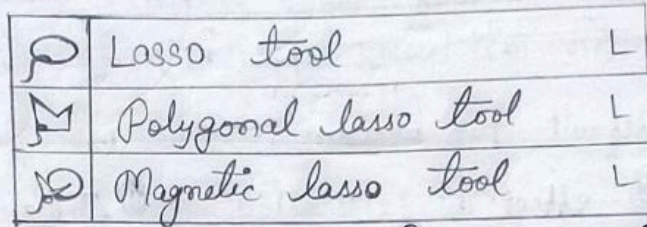 Lasso tool L
Polygonal lasso tool L
Magnetic lasso tool L